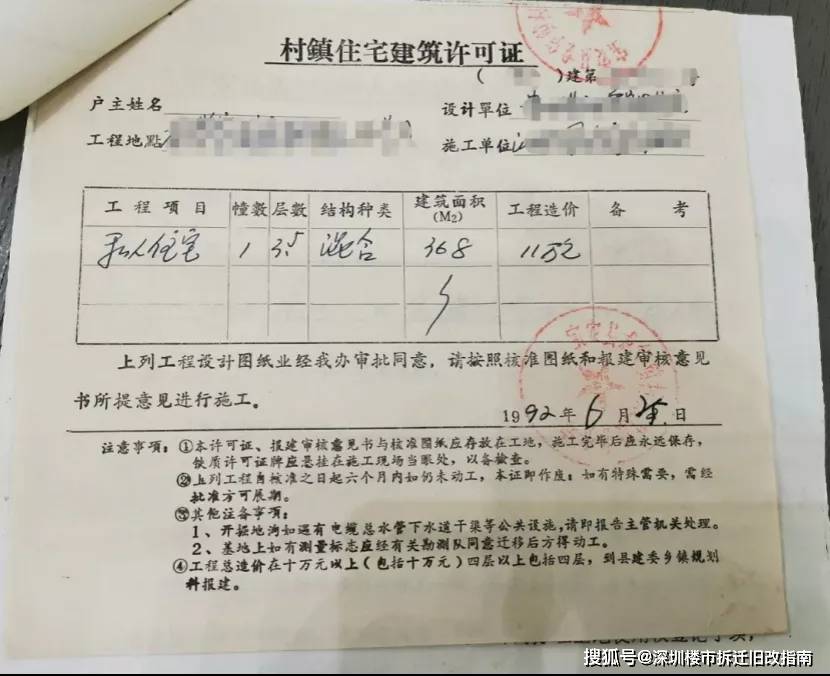 村鎮住宅建筑许可证
( )建第 号
户主姓名
设计單位
工程地點
施工单位
工程项目 幢數 层數 结构种类 建筑面积(M2) 工程造价 备考
私人住宅 1 3.5 混合 368 11万元
上列工程设計图纸业经我办审批同意，请按照核准图纸和报建审核意见
书所提意见进行施工。
1992年6月 日
注意事项：①本许可证、报建审核意见书与核准图纸应存放在工地，施工完毕后应永远保存，
铁质许可证牌应悬挂在施工现场当眼处，以备檢查。
②上列工程自核准之日起六个月内如仍未动工，本证即作废；如有特殊需要，需经
批准方可展期。
③其他注备事项：
1、开掘地沟如遇有电缆总水管下水道干渠等公共设施，请即报告主管机关处理。
2、基地上如有测量标志应经有关勘測队同意迁移后方得动工。
④工程总造价在十万元以上(包括十万元)四层以上包括四层，到县建委乡镇规划
科报建。
搜狐号@深圳楼市拆迁旧改指南